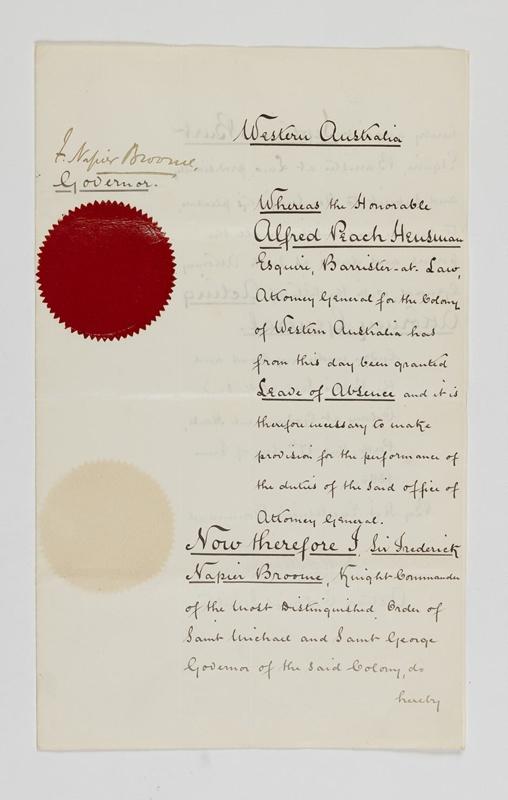 Western Australia
F. Napier Broome
Governor.
Whereas the Honorable
Alfred Peach Hensman
Esquire, Barrister-at-Law,
Attorney General for the Colony
of Western Australia has
from this day been granted
Leave of Absence and it is
therefore necessary to make
provision for the performance of
the duties of the said office of
Attorney General.
Now therefore I, Sir Frederick
Napier Broome, Knight Commander
of the Most Distinguished Order of
Saint Michael and Saint George
Governor of the said Colony, do
hereby